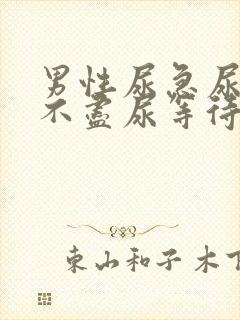 男性尿急尿
不盡尿等待
東山和子木下